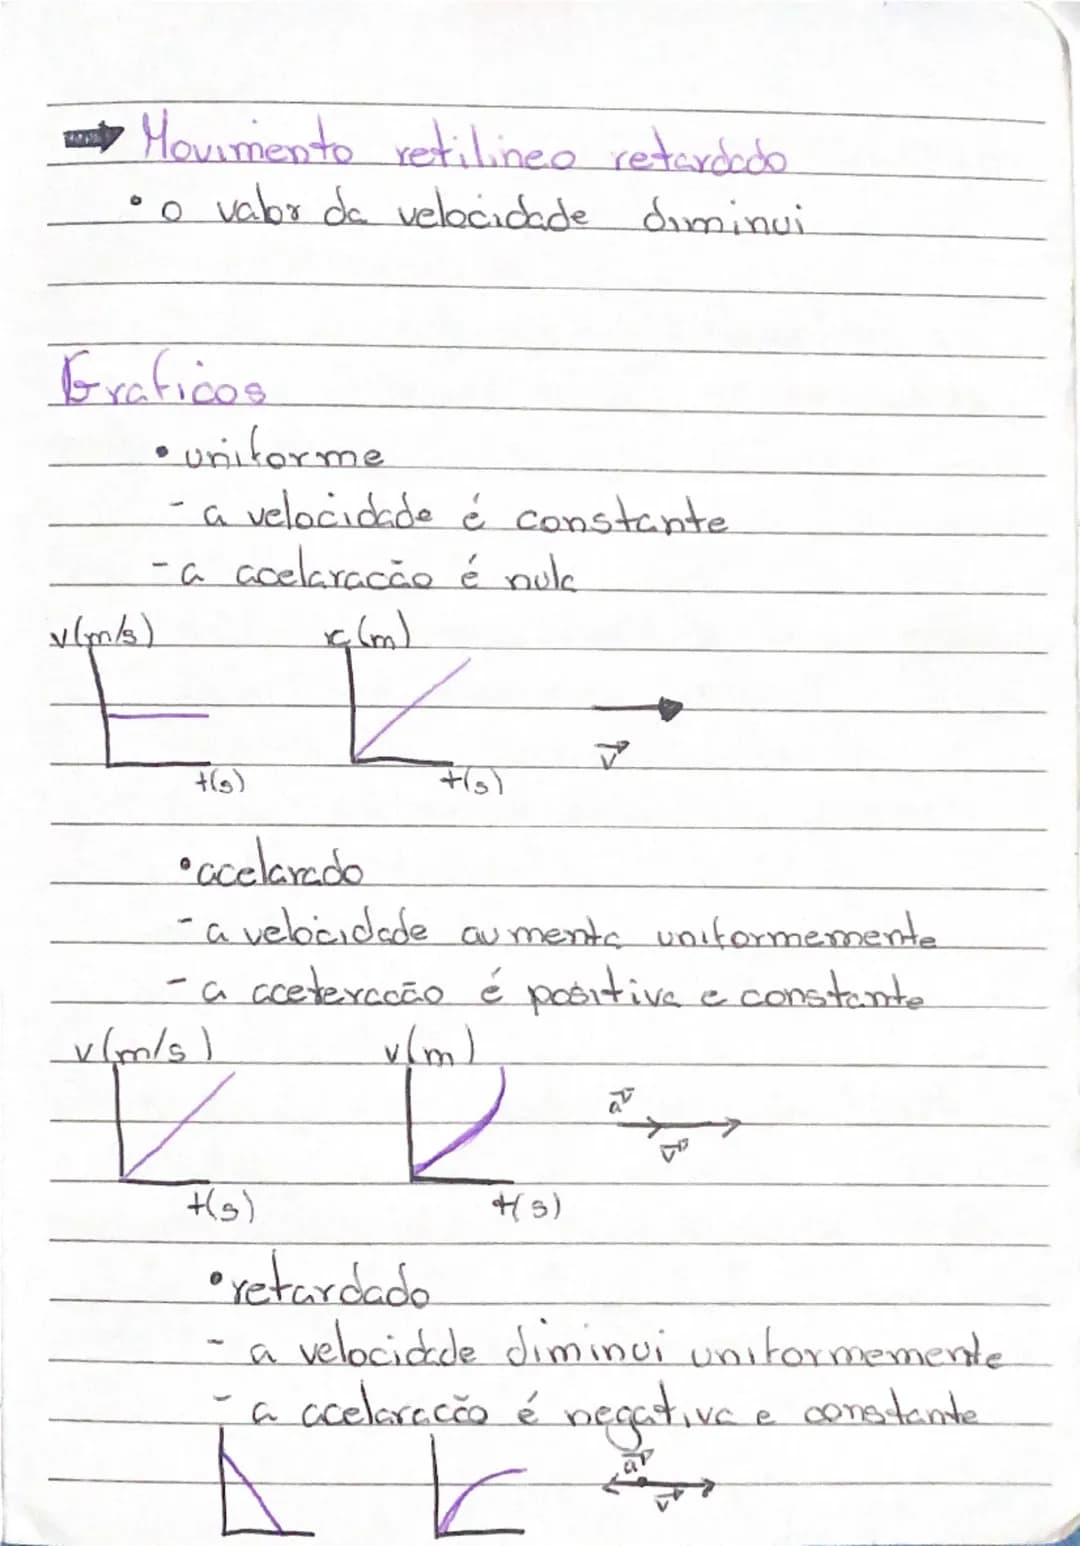 Movimento retilineo retardado
• o valor da velocidade diminui
Graficos
• uniforme
- a velocidade é constante
- a acelaracão é nula
v(m/s) x(m)
v
t(s) t(s)
• acelarado
- a velocidade aumenta uniformemente
- a aceleracão é positiva e constante
v(m/s) v(m)
a
v
t(s) t(s)
• retardado
- a velocidade diminui uniformemente
- a acelaracão é negativa e constante
a
v